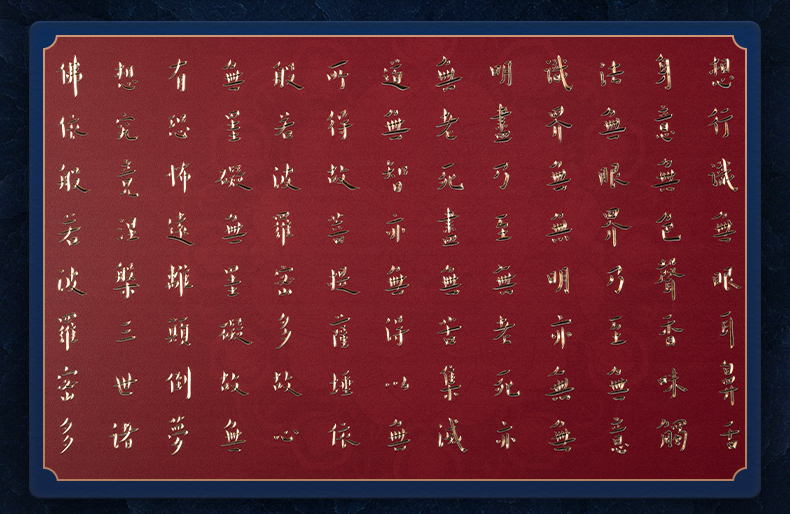 想行識無眼耳鼻舌
身意無色聲香味觸
法無眼界乃至無意
識界無無明亦無無
明盡乃至無老死亦
無老死盡無苦集滅
道無智亦無得以無
所得故菩提薩埵依
般若波羅蜜多故心
無罣礙無罣礙故無
有恐怖遠離顛倒夢
想究竟涅槃三世諸
佛依般若波羅蜜多